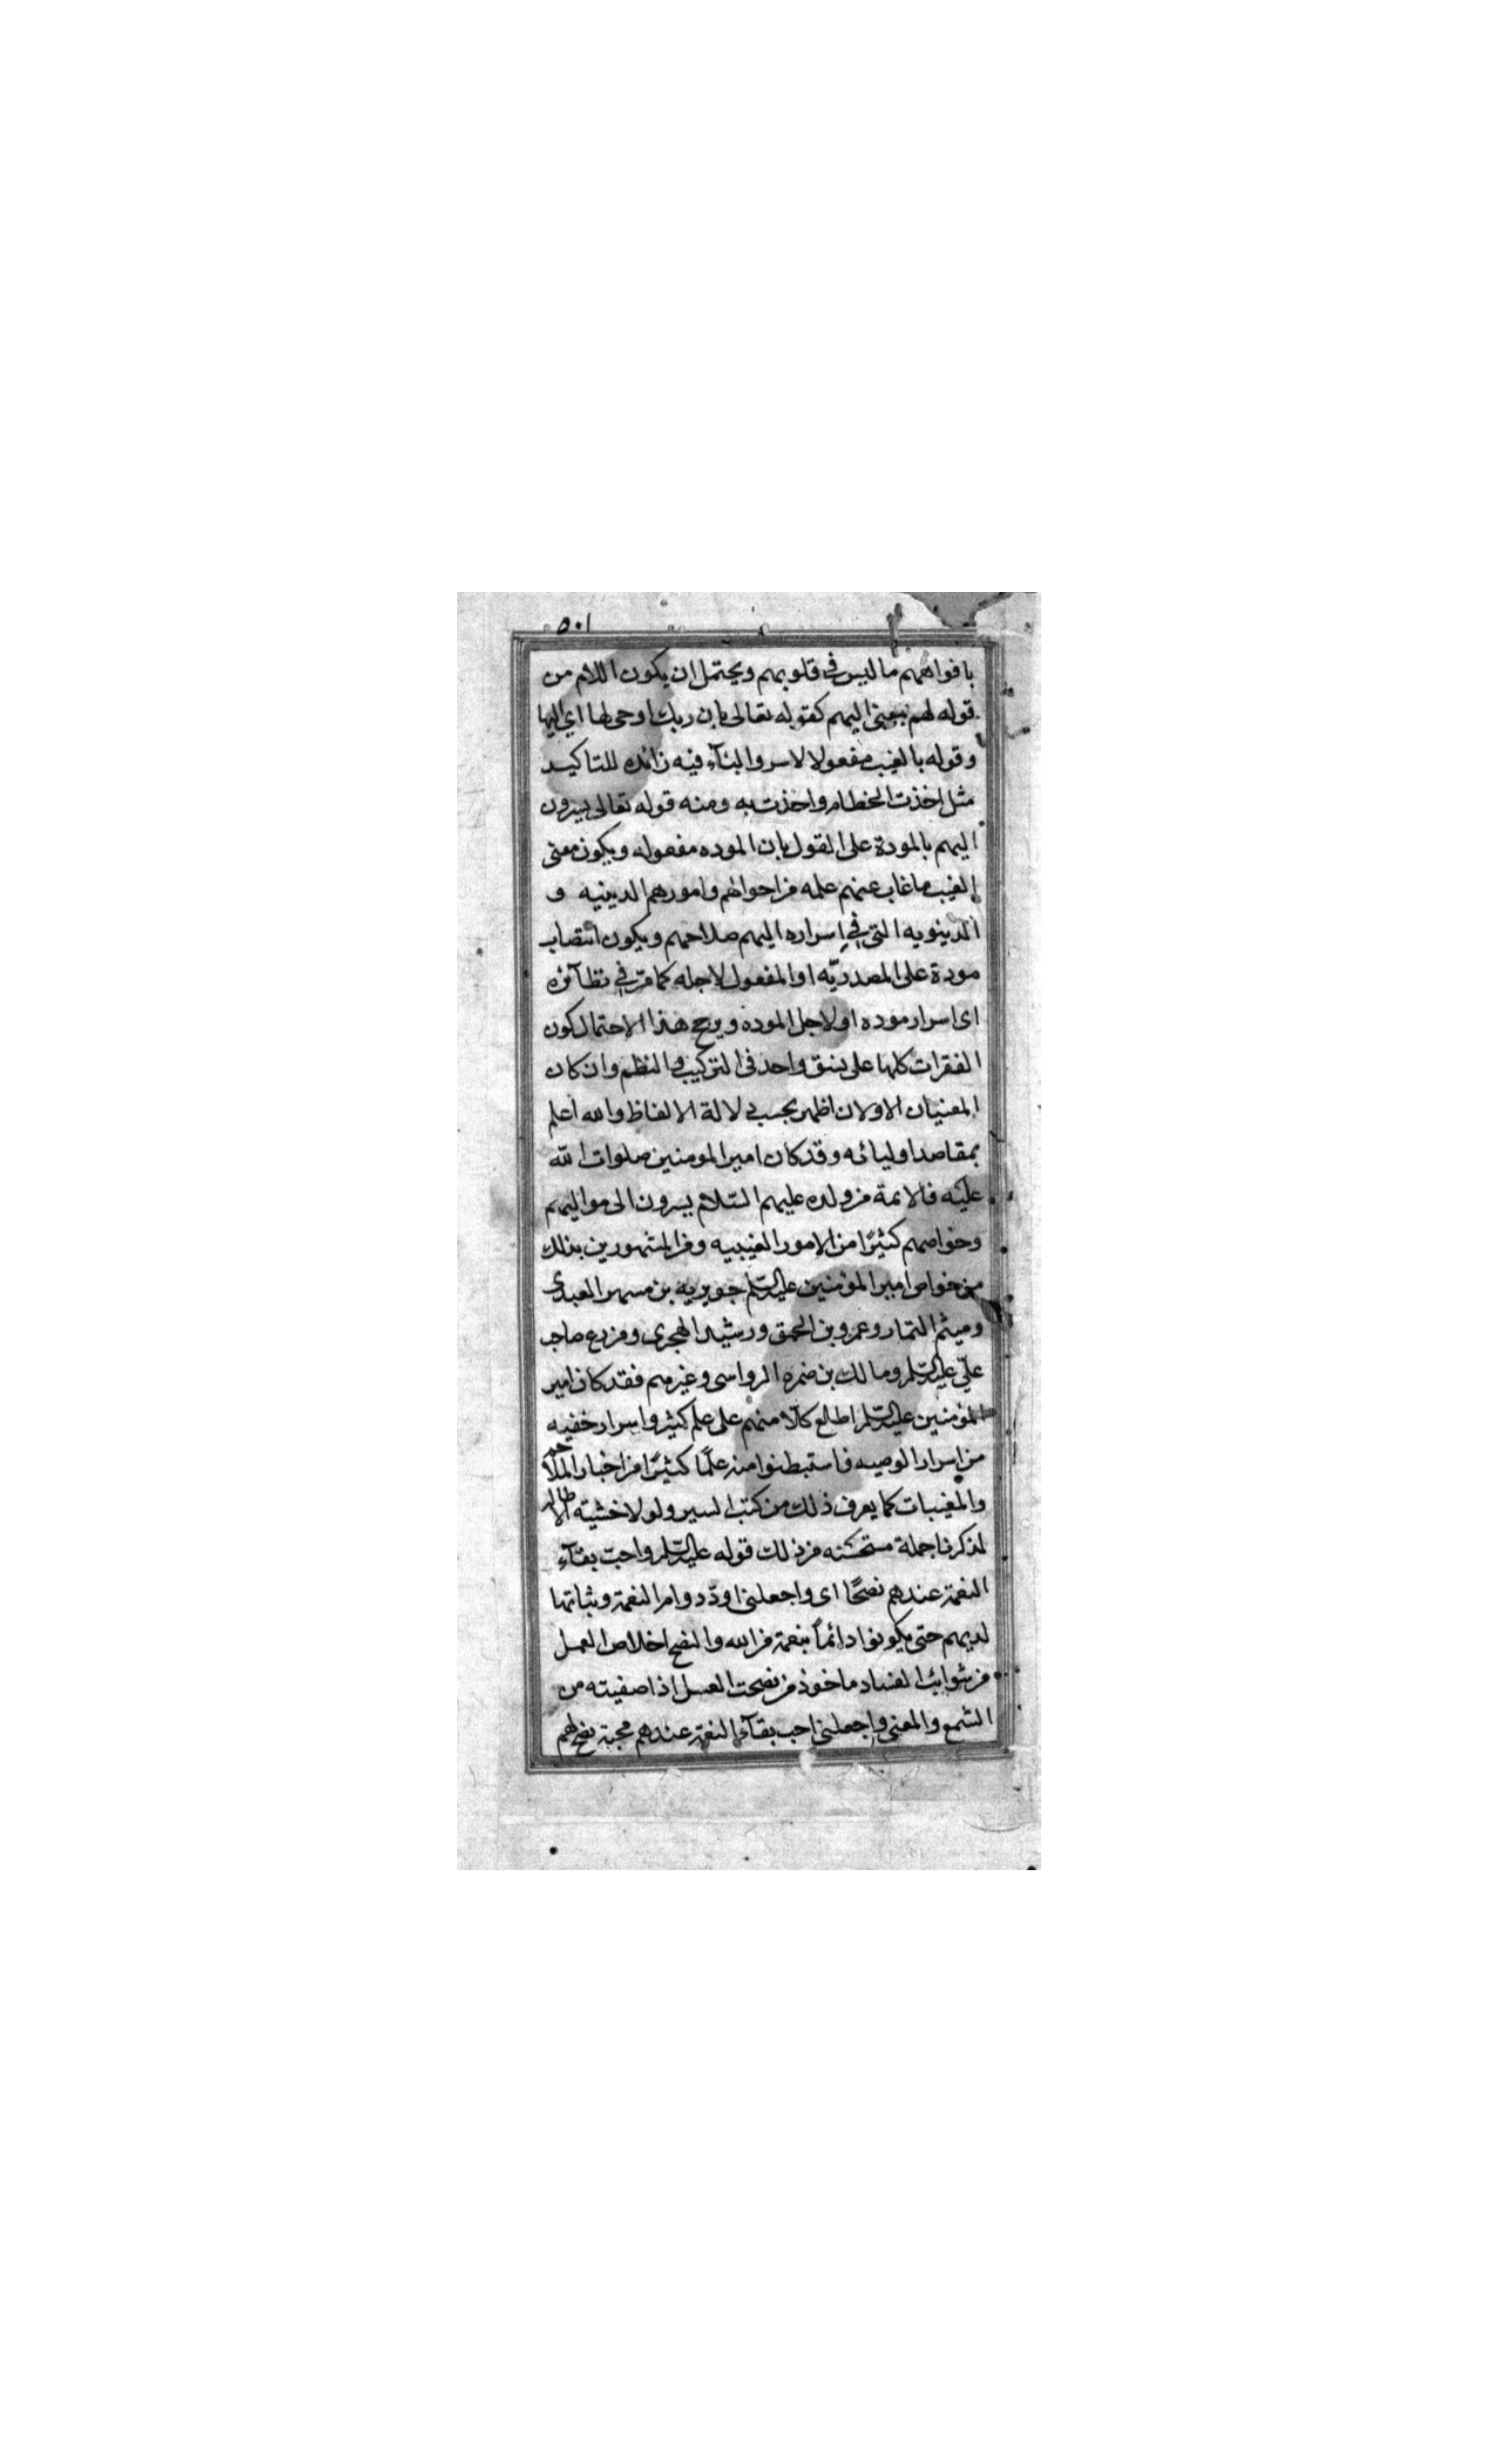 ٥٠١
بافواههم ما ليس فى قلوبهم ويحتمل ان يكون اللام من
قوله لهم بمعنى اليهم كقوله تعالى بان ربك اوحى لها اى اليها
وقوله بالغيب مفعولا لاسر والباء فيه زائده للتاكيد
مثل اخذت الخطام واخذت به ومنه قوله تعالى يسرون
اليهم بالمودة على القول بان الموده مفعوله ويكون معنى
الغيب ما غاب عنهم علمه من احوالهم وامورهم الدينيه و
الدنيويه التى فى اسراره اليهم صلاحهم ويكون انتصاب
مودة على المصدريّه او المفعول لاجله كما مرّ فى نظآئره
اى اسرار موده او لاجل الموده ويرجح هذا الاحتمال كون
الفقرات كلها على نسق واحد فى التركيب والنظم وان كان
المعنيان الاولان اظهر بحسب دلالة الالفاظ والله اعلم
بمقاصد اوليائه وقد كان امير المومنين صلوات الله
عليه فالائمة من ولده عليهم السّلام يسرون الى مواليهم
وخواصهم كثيرًا من الامور الغيبيه ومن المشهورين بذلك
من خواص امير المؤمنين عليه السّلم جويريه بن مسهر العبدى
وميثم التمار وعمرو بن الحمق ورشيد الهجرى ومزرع صاحب
علىّ عليه السّلم ومالك بن ضمره الرواسى وغيرهم فقد كان امير
المؤمنين عليه السّلم اطلع كلّا منهم على علم كثير واسرار خفيه
من اسرار الوصيه فاستبطنوا منه علمًا كثيرًا من اخبار الملاحم
والمغيبات كما يعرف ذلك من كتب السير ولولا خشية الاطاله
لذكرنا جملة مستحسنه من ذلك قوله عليه السّلم واحبّ بقآء
النعمة عندهم نصحًا اى واجعلنى اودّ دوام النعمة وثباتها
لديهم حتى يكونوا دائماً بنعمة من الله والنصح اخلاص العمل
من شوائب الفساد ماخوذ من نصحت العسل اذا صفيته من
الشمع والمعنى واجعلنى احب بقآء النعمة عندهم محبة نصح لهم